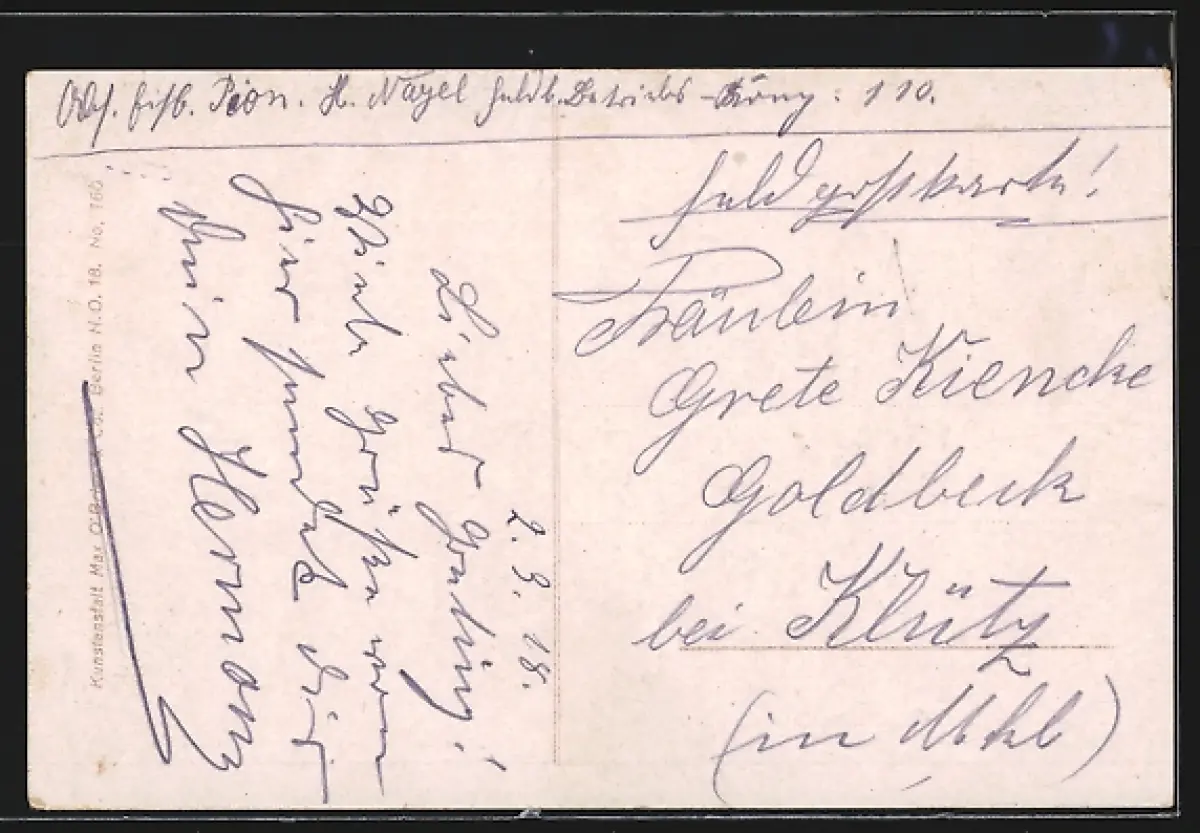 Abs. Eisb. Pion. H. Nagel Feldb. Betriebs-Komp: 110.
Feldpostkarte!
Fräulein
Grete Kiencke
Goldbeck
bei Klütz
(in Mkl)
2. 9. 18.
Liebes
Viele Grüße von
hier sendet Dir
Dein
Kunstanstalt Max Berlin N.O. 18. No. 160